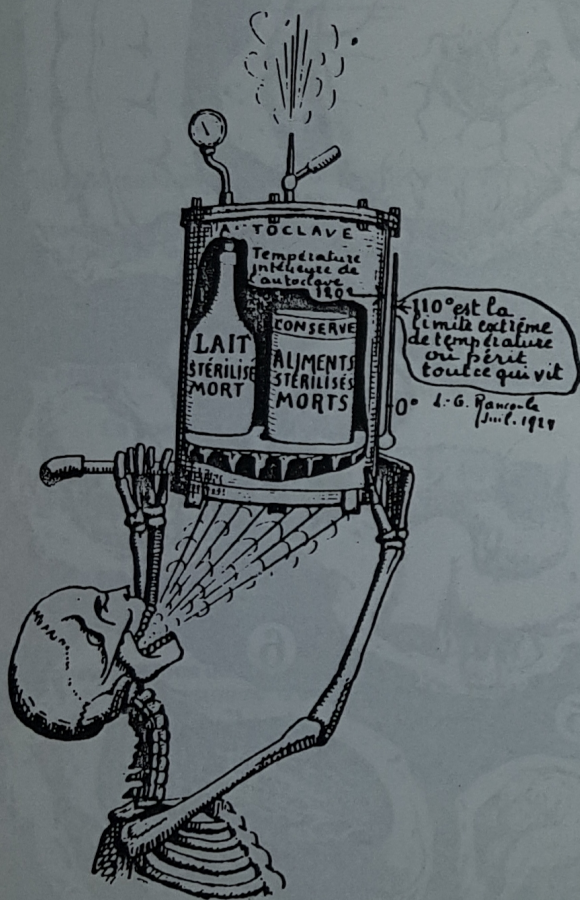 AUTOCLAVE
Température
intérieure de
l'autoclave
120°
CONSERVE
LAIT
STÉRILISÉ
MORT
ALIMENTS
STÉRILISÉS
MORTS
110° est la
limite extrême
de température
où périt
tout ce qui vit
0°
L.-G.